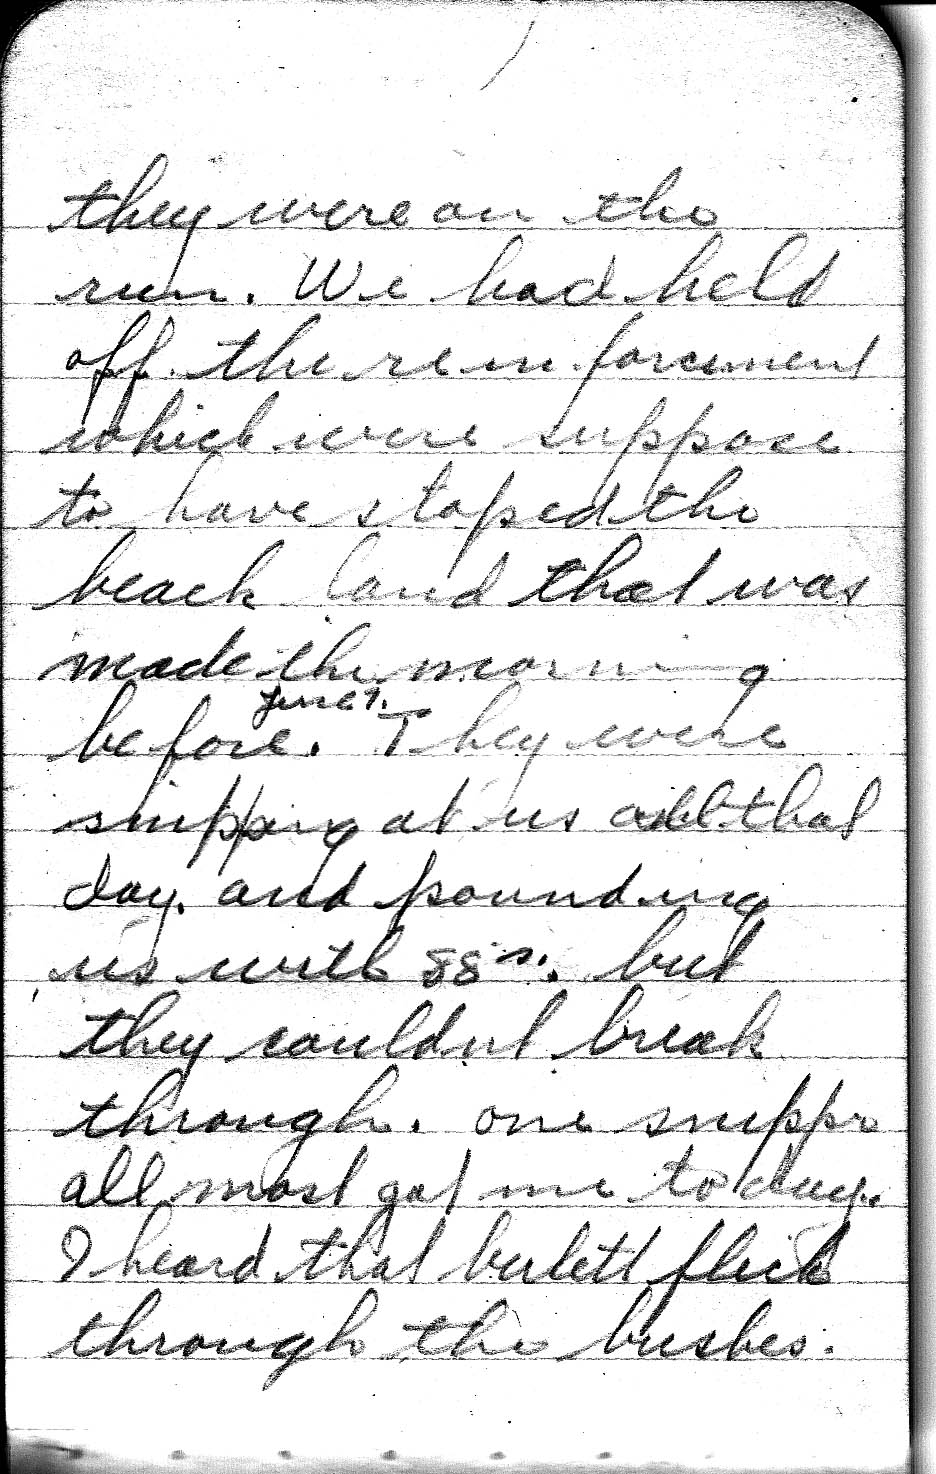 they were on the
run. We had held
off the reinforcment
which were suppose
to have stoped the
beach land that was
made the morning
June 7.
before. They were
snipping at us all that
day. and pounding
us with 88's. but
they couldnt break
through. one snipper
all most got me to day.
I heard that bulett flick
through the bushes.